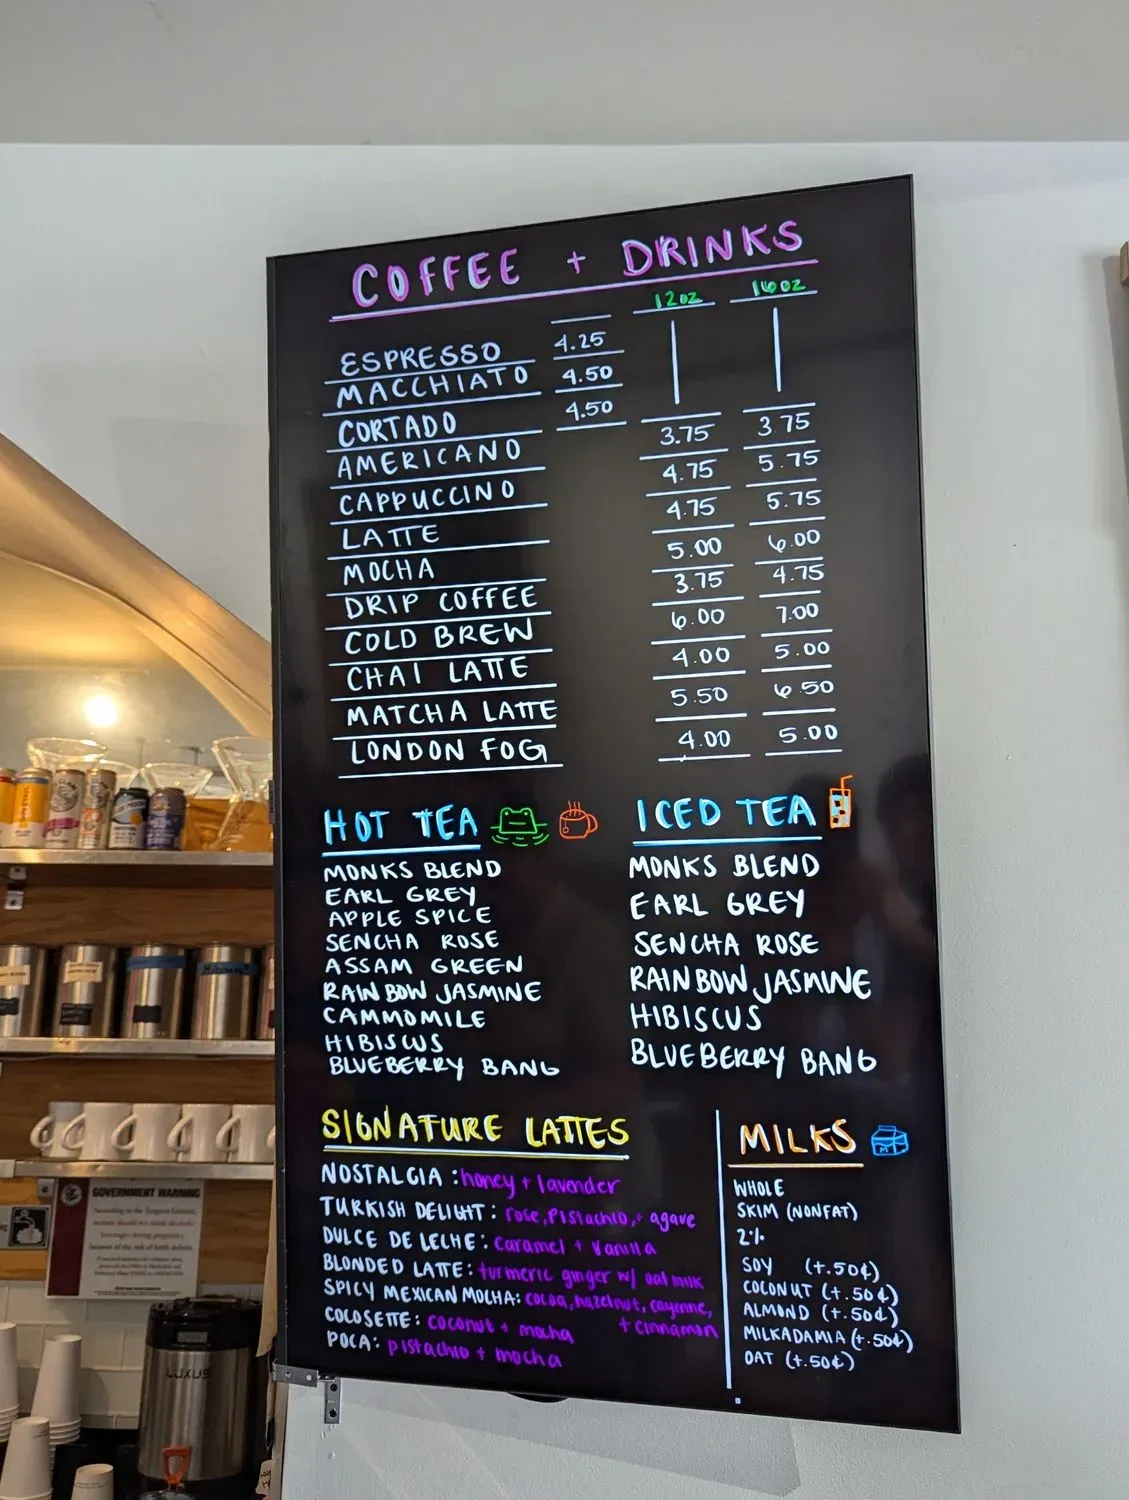 COFFEE + DRINKS
12oz 16oz
ESPRESSO 4.25
MACCHIATO 4.50
CORTADO 4.50
AMERICANO 3.75 3.75
CAPPUCCINO 4.75 5.75
LATTE 4.75 5.75
MOCHA 5.00 6.00
DRIP COFFEE 3.75 4.75
COLD BREW 6.00 7.00
CHAI LATTE 4.00 5.00
MATCHA LATTE 5.50 6.50
LONDON FOG 4.00 5.00
HOT TEA
MONKS BLEND
EARL GREY
APPLE SPICE
SENCHA ROSE
ASSAM GREEN
RAINBOW JASMINE
CAMMOMILE
HIBISCUS
BLUEBERRY BANG
ICED TEA
MONKS BLEND
EARL GREY
SENCHA ROSE
RAINBOW JASMINE
HIBISCUS
BLUEBERRY BANG
SIGNATURE LATTES
NOSTALGIA : honey + lavender
TURKISH DELIGHT : rose, Pistachio, + agave
DULCE DE LECHE : caramel + vanilla
BLONDED LATTE : turmeric ginger w/ oat milk
SPICY MEXICAN MOCHA: cocoa, hazelnut, cayenne,
+ cinnamon
COLOSETTE : coconut + mocha
POCA: pistachio + mocha
MILKS
WHOLE
SKIM (NONFAT)
2%
SOY (+.50¢)
COCONUT (+.50¢)
ALMOND (+.50¢)
MILKADAMIA (+.50¢)
OAT (+.50¢)
Hibiscus
GOVERNMENT WARNING
According to the Surgeon General,
women should not drink alcoholic
beverages during pregnancy
because of the risk of birth defects.
LUXUS